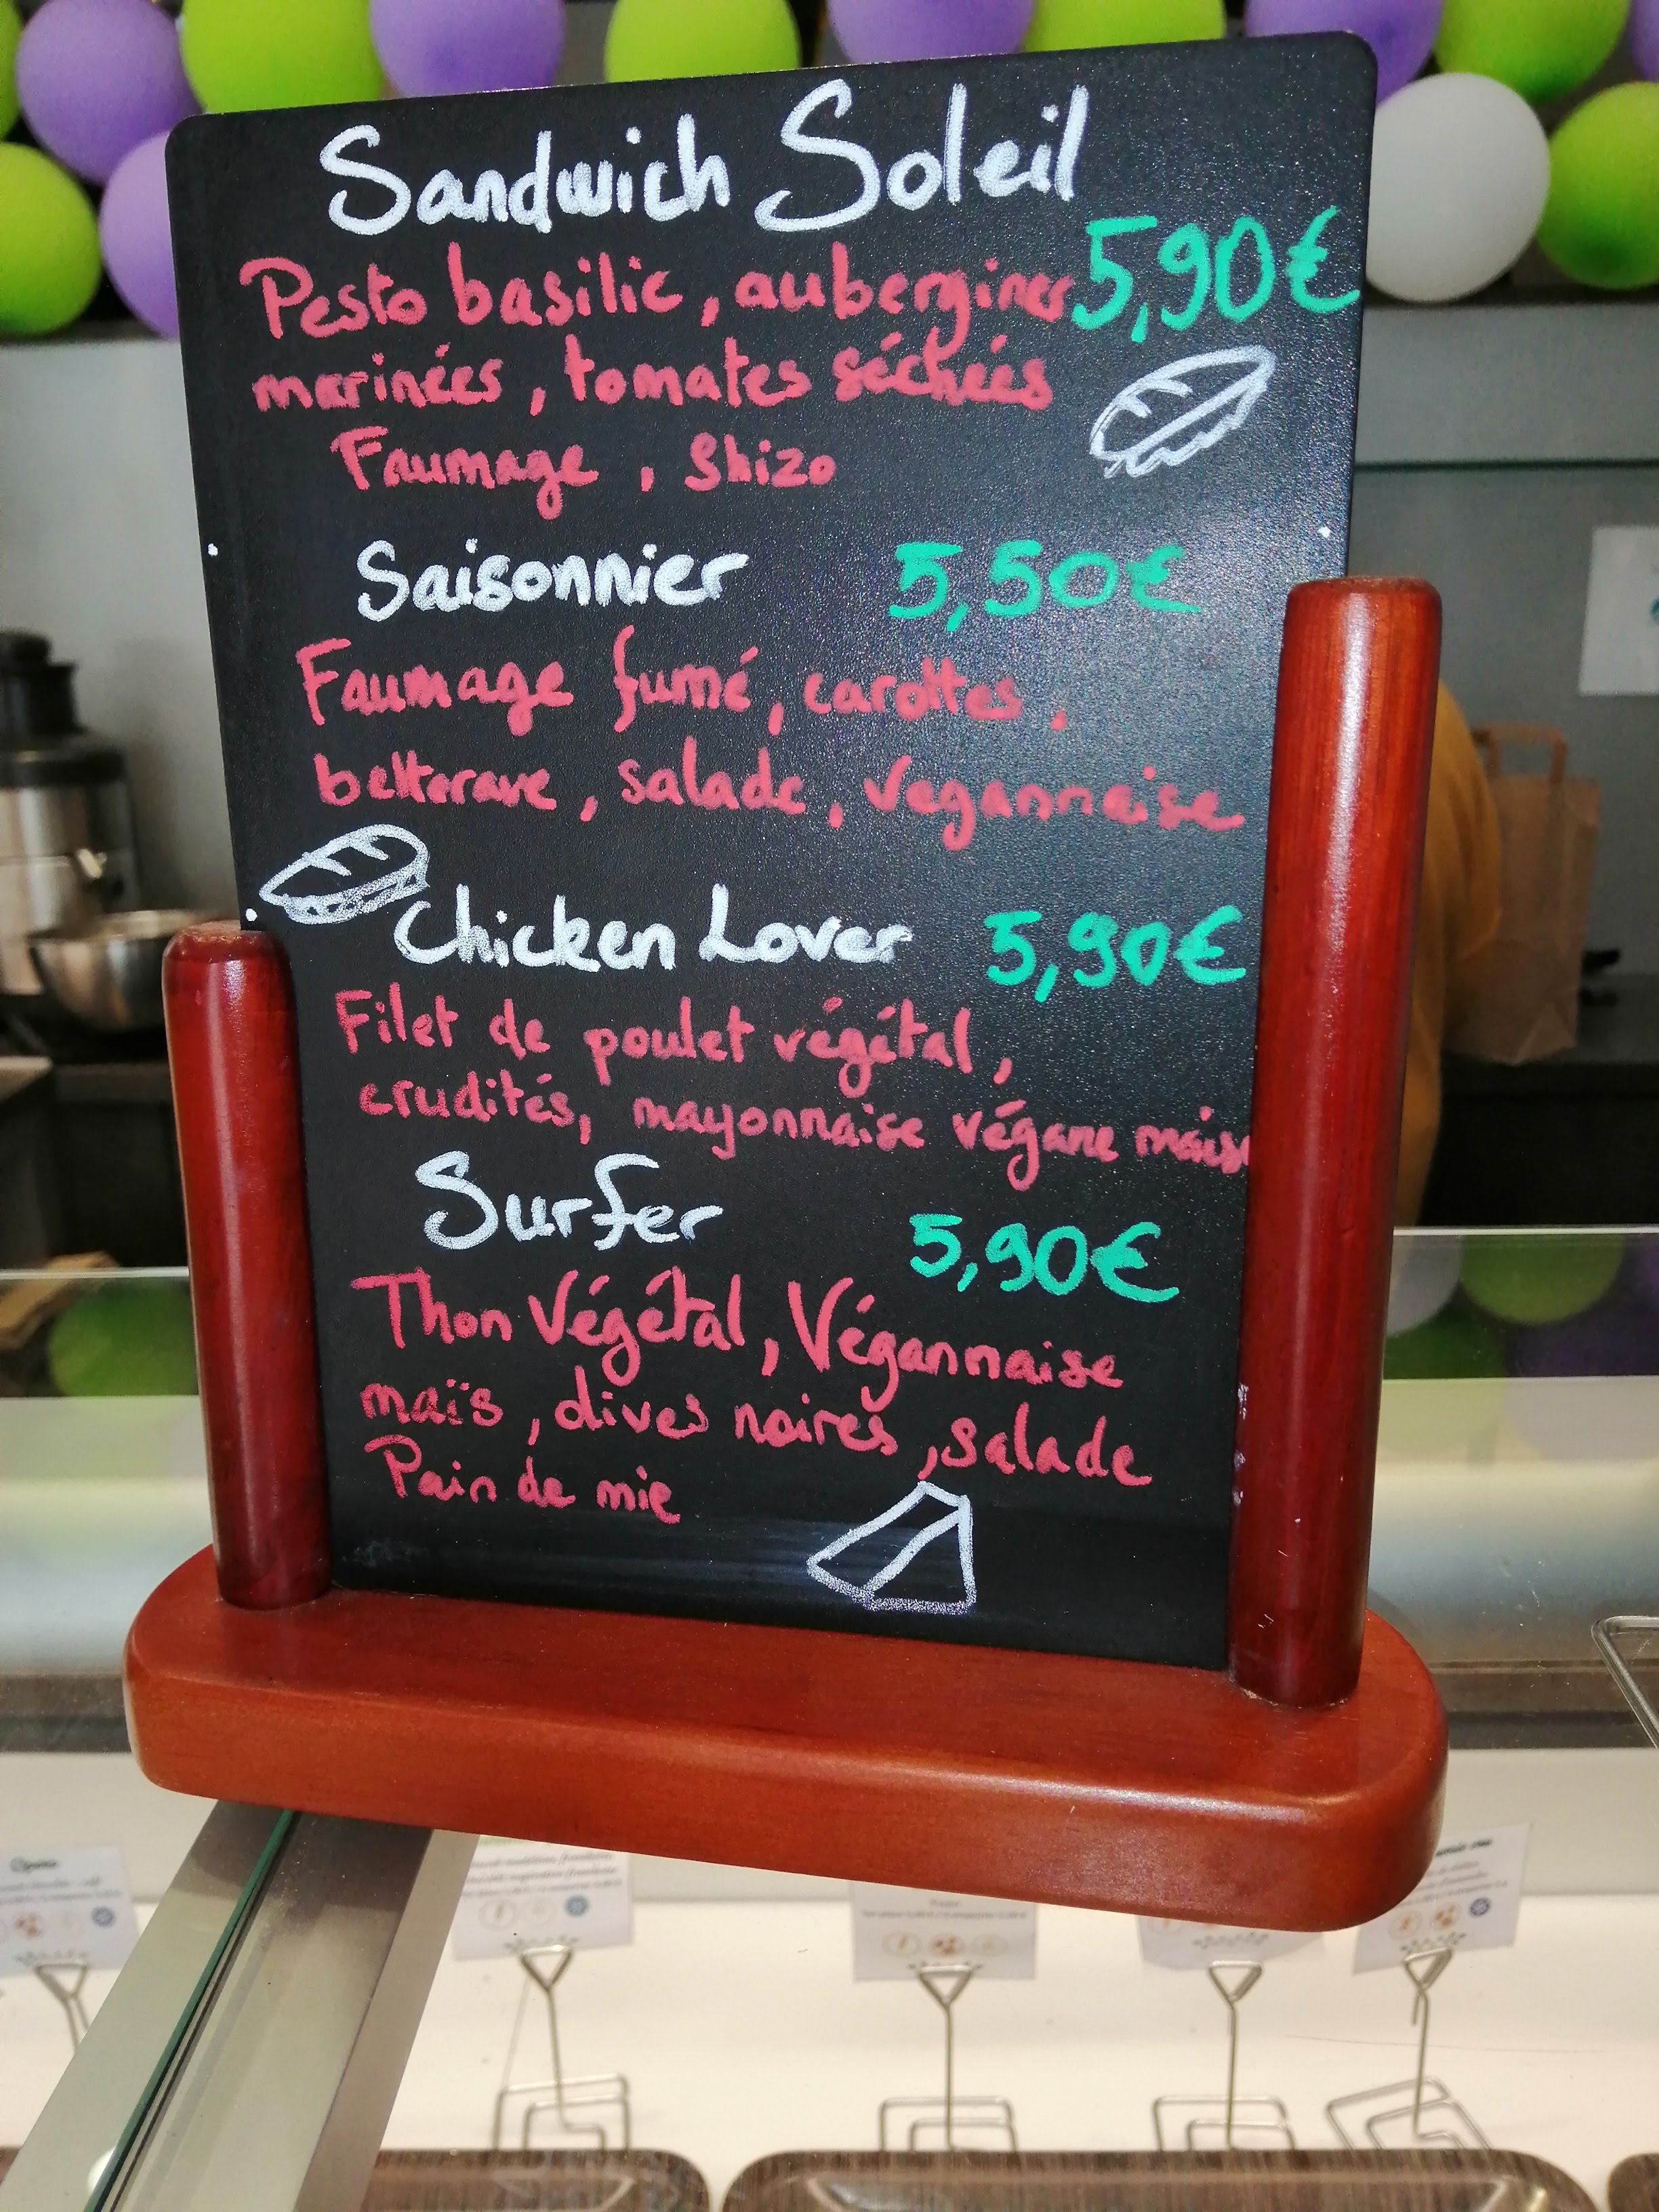 Sandwich Soleil
Pesto basilic, aubergines 5,90€
marinées, tomates séchées
Faumage, Shizo
Saisonnier 5,50€
Faumage fumé, carottes,
betterave, salade, vegannaise
Chicken Lover 5,90€
Filet de poulet végétal,
crudités, mayonnaise végane maison
Surfer 5,90€
Thon Végétal, Végannaise
maïs, olives noires, salade
Pain de mie